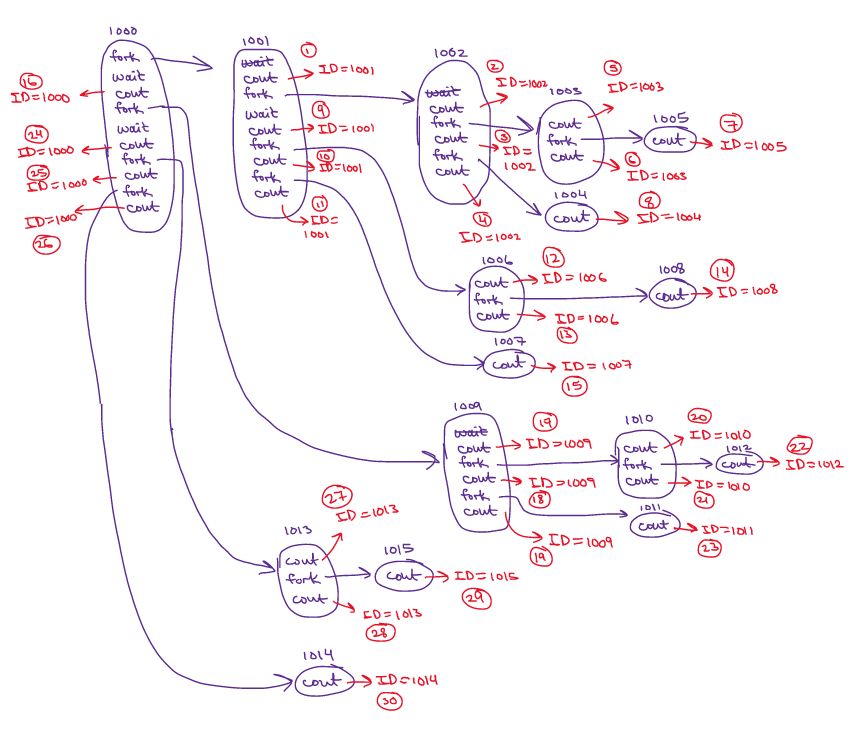 1000
fork
wait
cout
fork
wait
cout
fork
cout
fork
cout
16
ID=1000
24
ID=1000
25
ID=1000
ID=1000
26
1001
wait
cout
fork
wait
cout
fork
cout
fork
cout
1
ID=1001
9
ID=1001
10
ID=1001
11
ID=
1001
1002
wait
cout
fork
cout
fork
cout
2
ID=1002
3
ID=
1002
4
ID=1002
1003
cout
fork
cout
5
ID=1003
6
ID=1003
1005
cout
7
ID=1005
1004
cout
8
ID=1004
1006
cout
fork
cout
12
ID=1006
ID=1006
13
1008
cout
14
ID=1008
1007
cout
ID=1007
15
1009
wait
cout
fork
cout
fork
cout
19
ID=1009
ID=1009
18
ID=1009
19
1010
cout
fork
cout
20
ID=1010
ID=1010
21
1012
cout
22
ID=1012
1011
cout
ID=1011
23
1013
cout
fork
cout
27
ID=1013
ID=1013
28
1015
cout
ID=1015
29
1014
cout
ID=1014
30